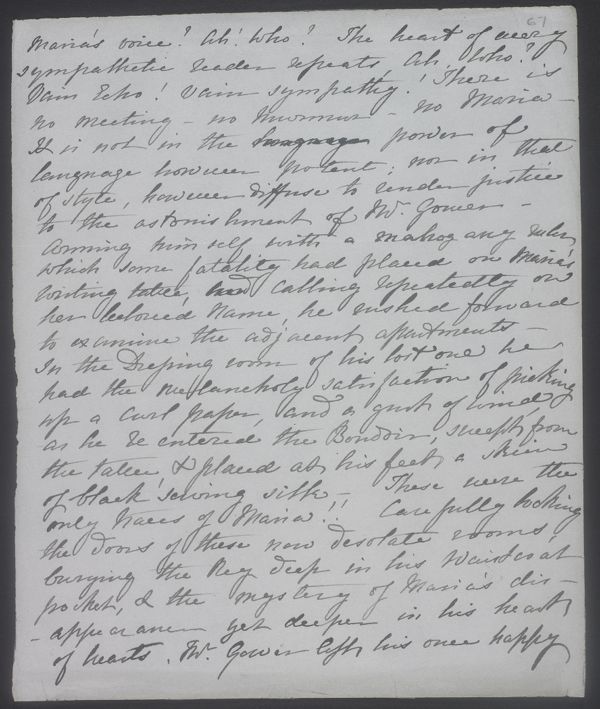 67
Maria's voice? Ah! Who? The heart of every
sympathetic reader repeats, Ah. Who?
Vain Echo! Vain sympathy! There is
no meeting – no murmur – no Maria –
It is not in the language power of
language however potent; nor in that
of style, however diffuse to render justice
to the astonishment of Mr. Gower –
Arming himself with a mahogany ruler,
which some fatality had placed on Maria's
writing table, and calling repeatedly on
her beloved name, he rushed forward
to examine the adjacent apartments –
In the Dressing room of his lost one he
had the melancholy satisfaction of picking
up a curl paper, and a gust of wind
as he re entered the Boudoir, swept from
the table, & placed at his feet a skein
of black sewing silk – These were the
only traces of Maria!! Carefully locking
the doors of these now desolate rooms,
burying the Key deep in his waistcoat
pocket, & the mystery of Maria's dis-
-appearance yet deeper in his heart
of hearts, Mr. Gower left his once happy